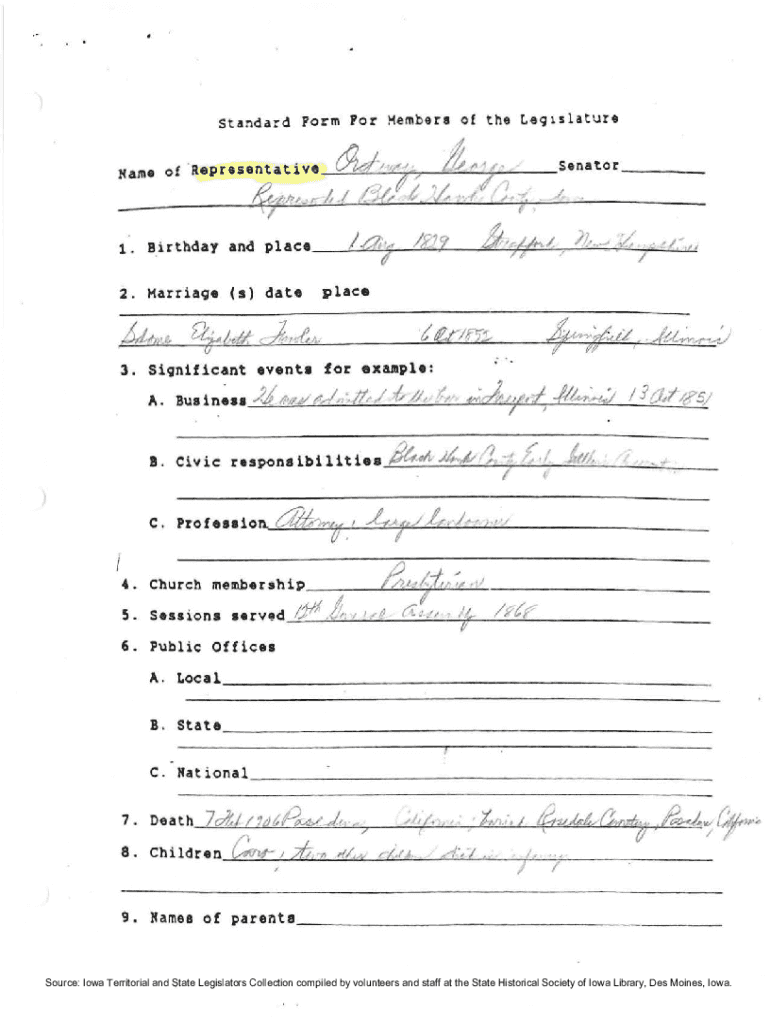 Standard Form For Members of the Legislature
Name of Representative Ordway, George Senator
Represented Black Hawk County, Iowa
1. Birthday and place 1 Aug 1829 Strafford, New Hampshire
2. Marriage (s) date place
Elizabeth Fowler 6 Oct 1852 Springfield, Illinois
3. Significant events for example:
A. Business He was admitted to the bar in Freeport, Illinois 13 Oct 1851
B. Civic responsibilities Black Hawk County Early Settlers
C. Profession Attorney; large landowner
4. Church membership Presbyterian
5. Sessions served 12th General Assembly 1868
6. Public Offices
A. Local
B. State
C. National
7. Death 7 Feb 1906 Pasadena, California; buried Rosedale Cemetery, Pasadena, California
8. Children two other children died in infancy
9. Names of parents
Source: Iowa Territorial and State Legislators Collection compiled by volunteers and staff at the State Historical Society of Iowa Library, Des Moines, Iowa.